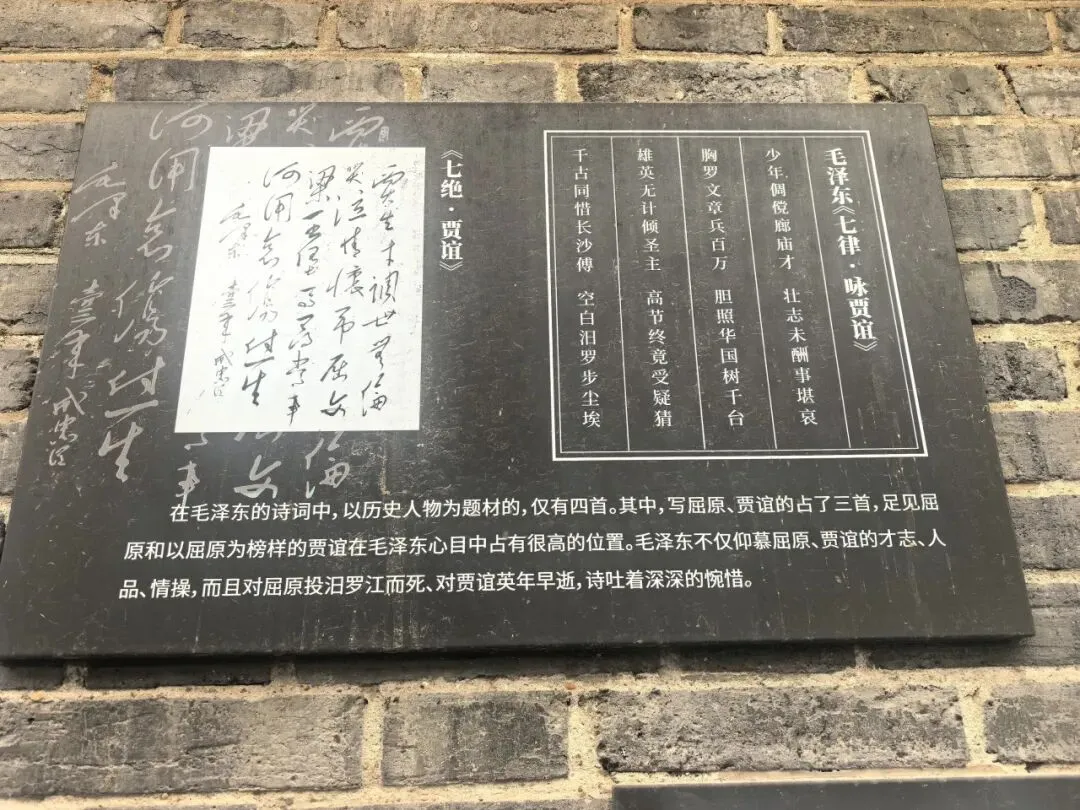 毛泽东《七律·咏贾谊》
少年倜傥廊庙才 壮志未酬事堪哀
胸罗文章兵百万 胆照华国树千台
雄英无计倾圣主 高节终竟受疑猜
千古同惜长沙傅 空白汨罗步尘埃
《七绝·贾谊》
賈生才調世無倫
哭泣情懷吊屈文
梁王墮馬尋常事
何用哀傷付一生
毛泽东
在毛泽东的诗词中，以历史人物为题材的，仅有四首。其中，写屈原、贾谊的占了三首，足见屈
原和以屈原为榜样的贾谊在毛泽东心目中占有很高的位置。毛泽东不仅仰慕屈原、贾谊的才志、人
品、情操，而且对屈原投汨罗江而死、对贾谊英年早逝，诗吐着深深的惋惜。